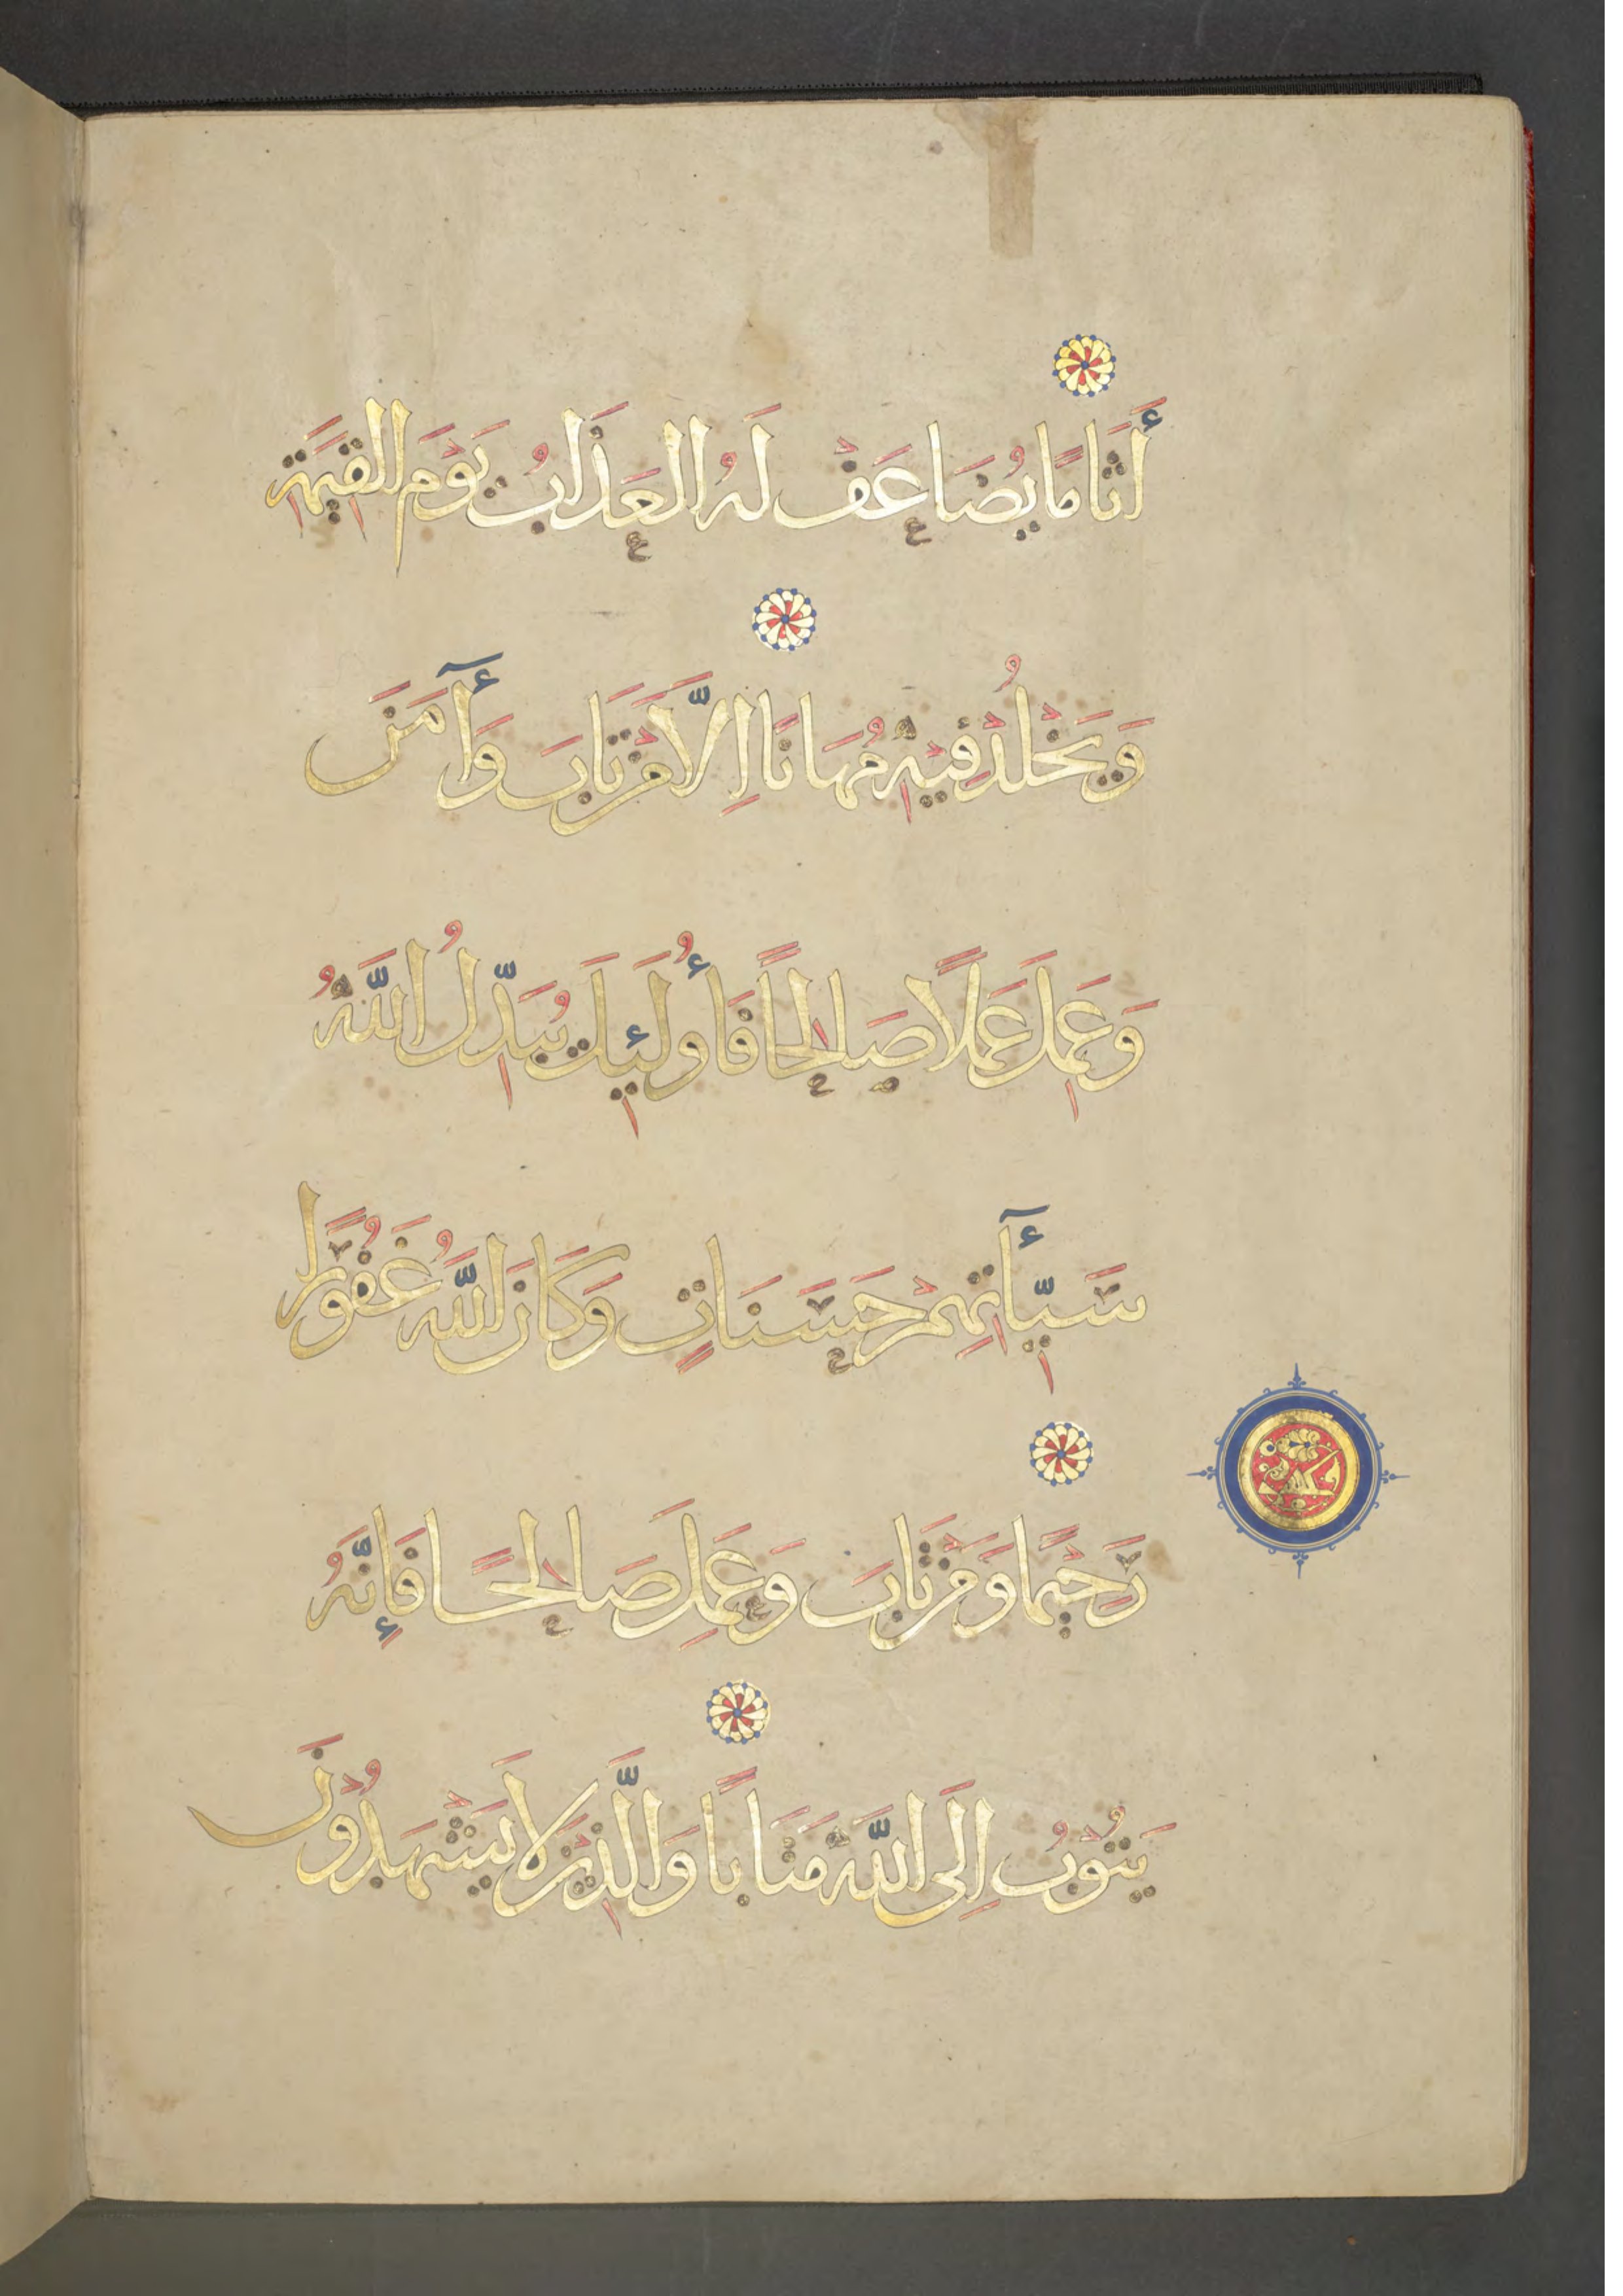 أَثَامًا يُضَاعَفْ لَهُ الْعَذَابُ يَوْمَ الْقِيٰمَةِ
وَيَخْلُدْ فِيْهِ مُهَانًا اِلَّا مَنْ تَابَ وَأٓمَنَ
وَعَمِلَ عَمَلًا صَالِحًا فَأُولَئِكَ يُبَدِّلُ اللَّهُ
سَيِّأٓتِهِمْ حَسَنَاتٍ وَكَانَ اللَّهُ غَفُوْرًا
رَحِيْمًا وَمَنْ تَابَ وَعَمِلَ صَالِحًا فَإِنَّهُ
يَتُوْبُ اِلَى اللَّهِ مَتَابًا وَالَّذِيْنَ لَا يَشْهَدُوْنَ